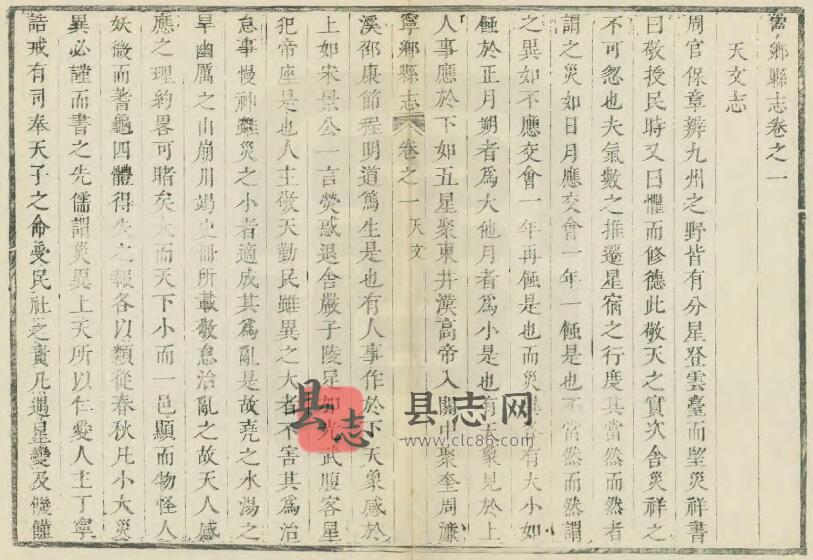 寧鄉縣志卷之一
天文志
周官保章辨九州之野皆有分星登雲臺而望災祥書
曰敬授民時又曰懼而修德此敬天之實次舍災祥之
不可忽也夫氣數之推遷星宿之行度其當然而然者
謂之災如日月應交會一年一蝕是也不當然而然謂
之異如不應交會一年再蝕是也而災異又有大小如
蝕於正月朔者為大他月者為小是也有天象見於上
人事應於下如五星聚東井漢高帝入關中聚奎周濂
寧鄉縣志 卷之一 天文
溪邵康節程明道篤生是也有人事作於下天象感於
上如宋景公一言熒惑退舍嚴子陵足加光武腹客星
犯帝座是也人主敬天勤民雖異之大者不害其為治
怠事慢神雖災之小者適成其為亂是故堯之水湯之
旱幽厲之山崩川竭史冊所載敬怠治亂之故天人感
應之理約畧可睹矣大而天下小而一邑顯而物怪人
妖微而蓍龜四體得失之報各以類從春秋凡小大災
異必謹而書之先儒謂災異上天所以仁愛人主丁寧
誥戒有司奉天子之命受民社之責凡遇星變及饑饉
县志
县志网
www.clc86.com